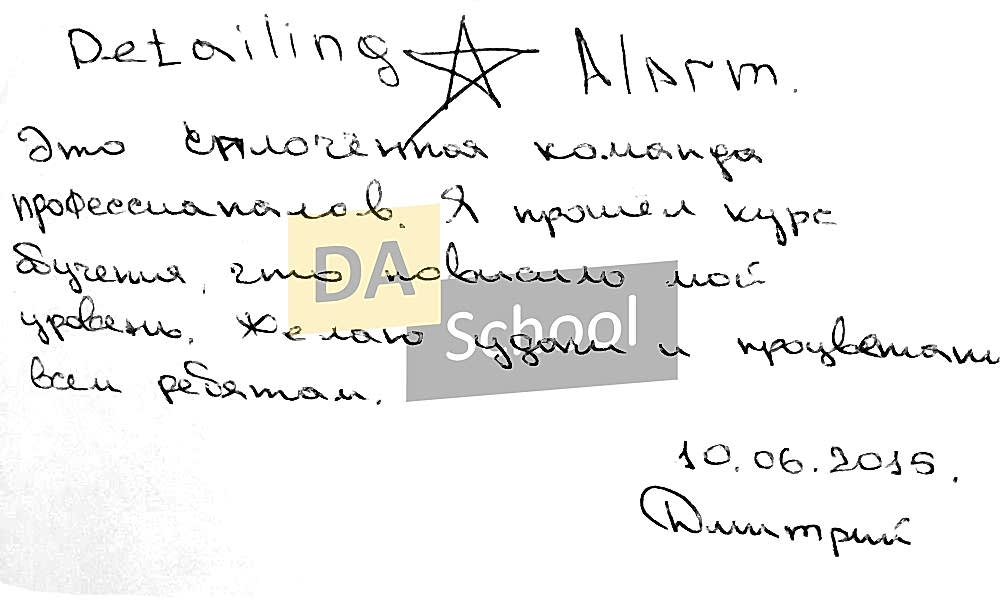 Detailing Alarm.
Это сплочённая команда
профессианалов. Я прошёл курс
обучения, что повысило мой
DA
уровень. Желаю удачи и процветания
School
всем ребятам.
10.06.2015.
Дмитрий